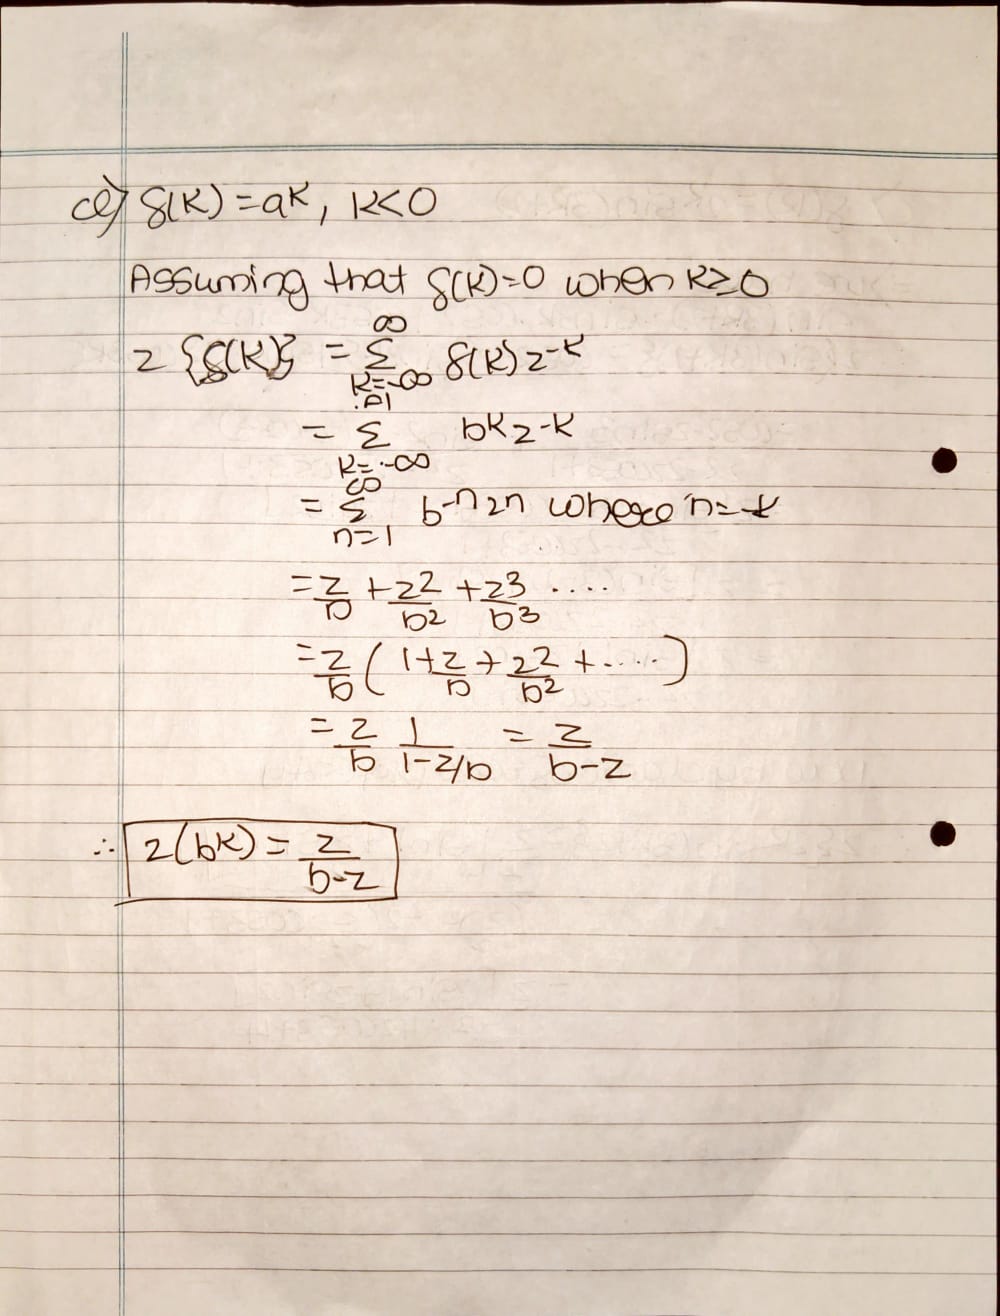 e) f(k)=a^k, k<0
Assuming that f(k)=0 when k≥0
z {f(k)} = ∞Σk=-∞ f(k) z^-k
= -1Σk=-∞ b^k z^-k
= ∞Σn=1 b^-n z^n where n=-k
= z/b + z^2/b^2 + z^3/b^3 ....
= z/b ( 1 + z/b + z^2/b^2 + ..... )
= z/b 1/1-z/b = z/b-z
∴ z(b^k) = z/b-z